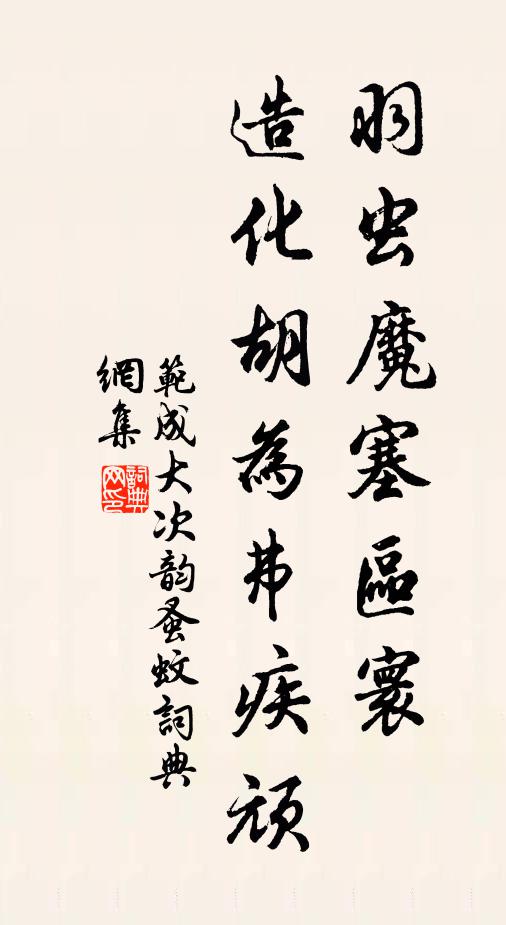 羽虫魔塞區寰
造化胡為弗疾頑
範成大次韵蚤蚊詞典
網集
詞典
网印